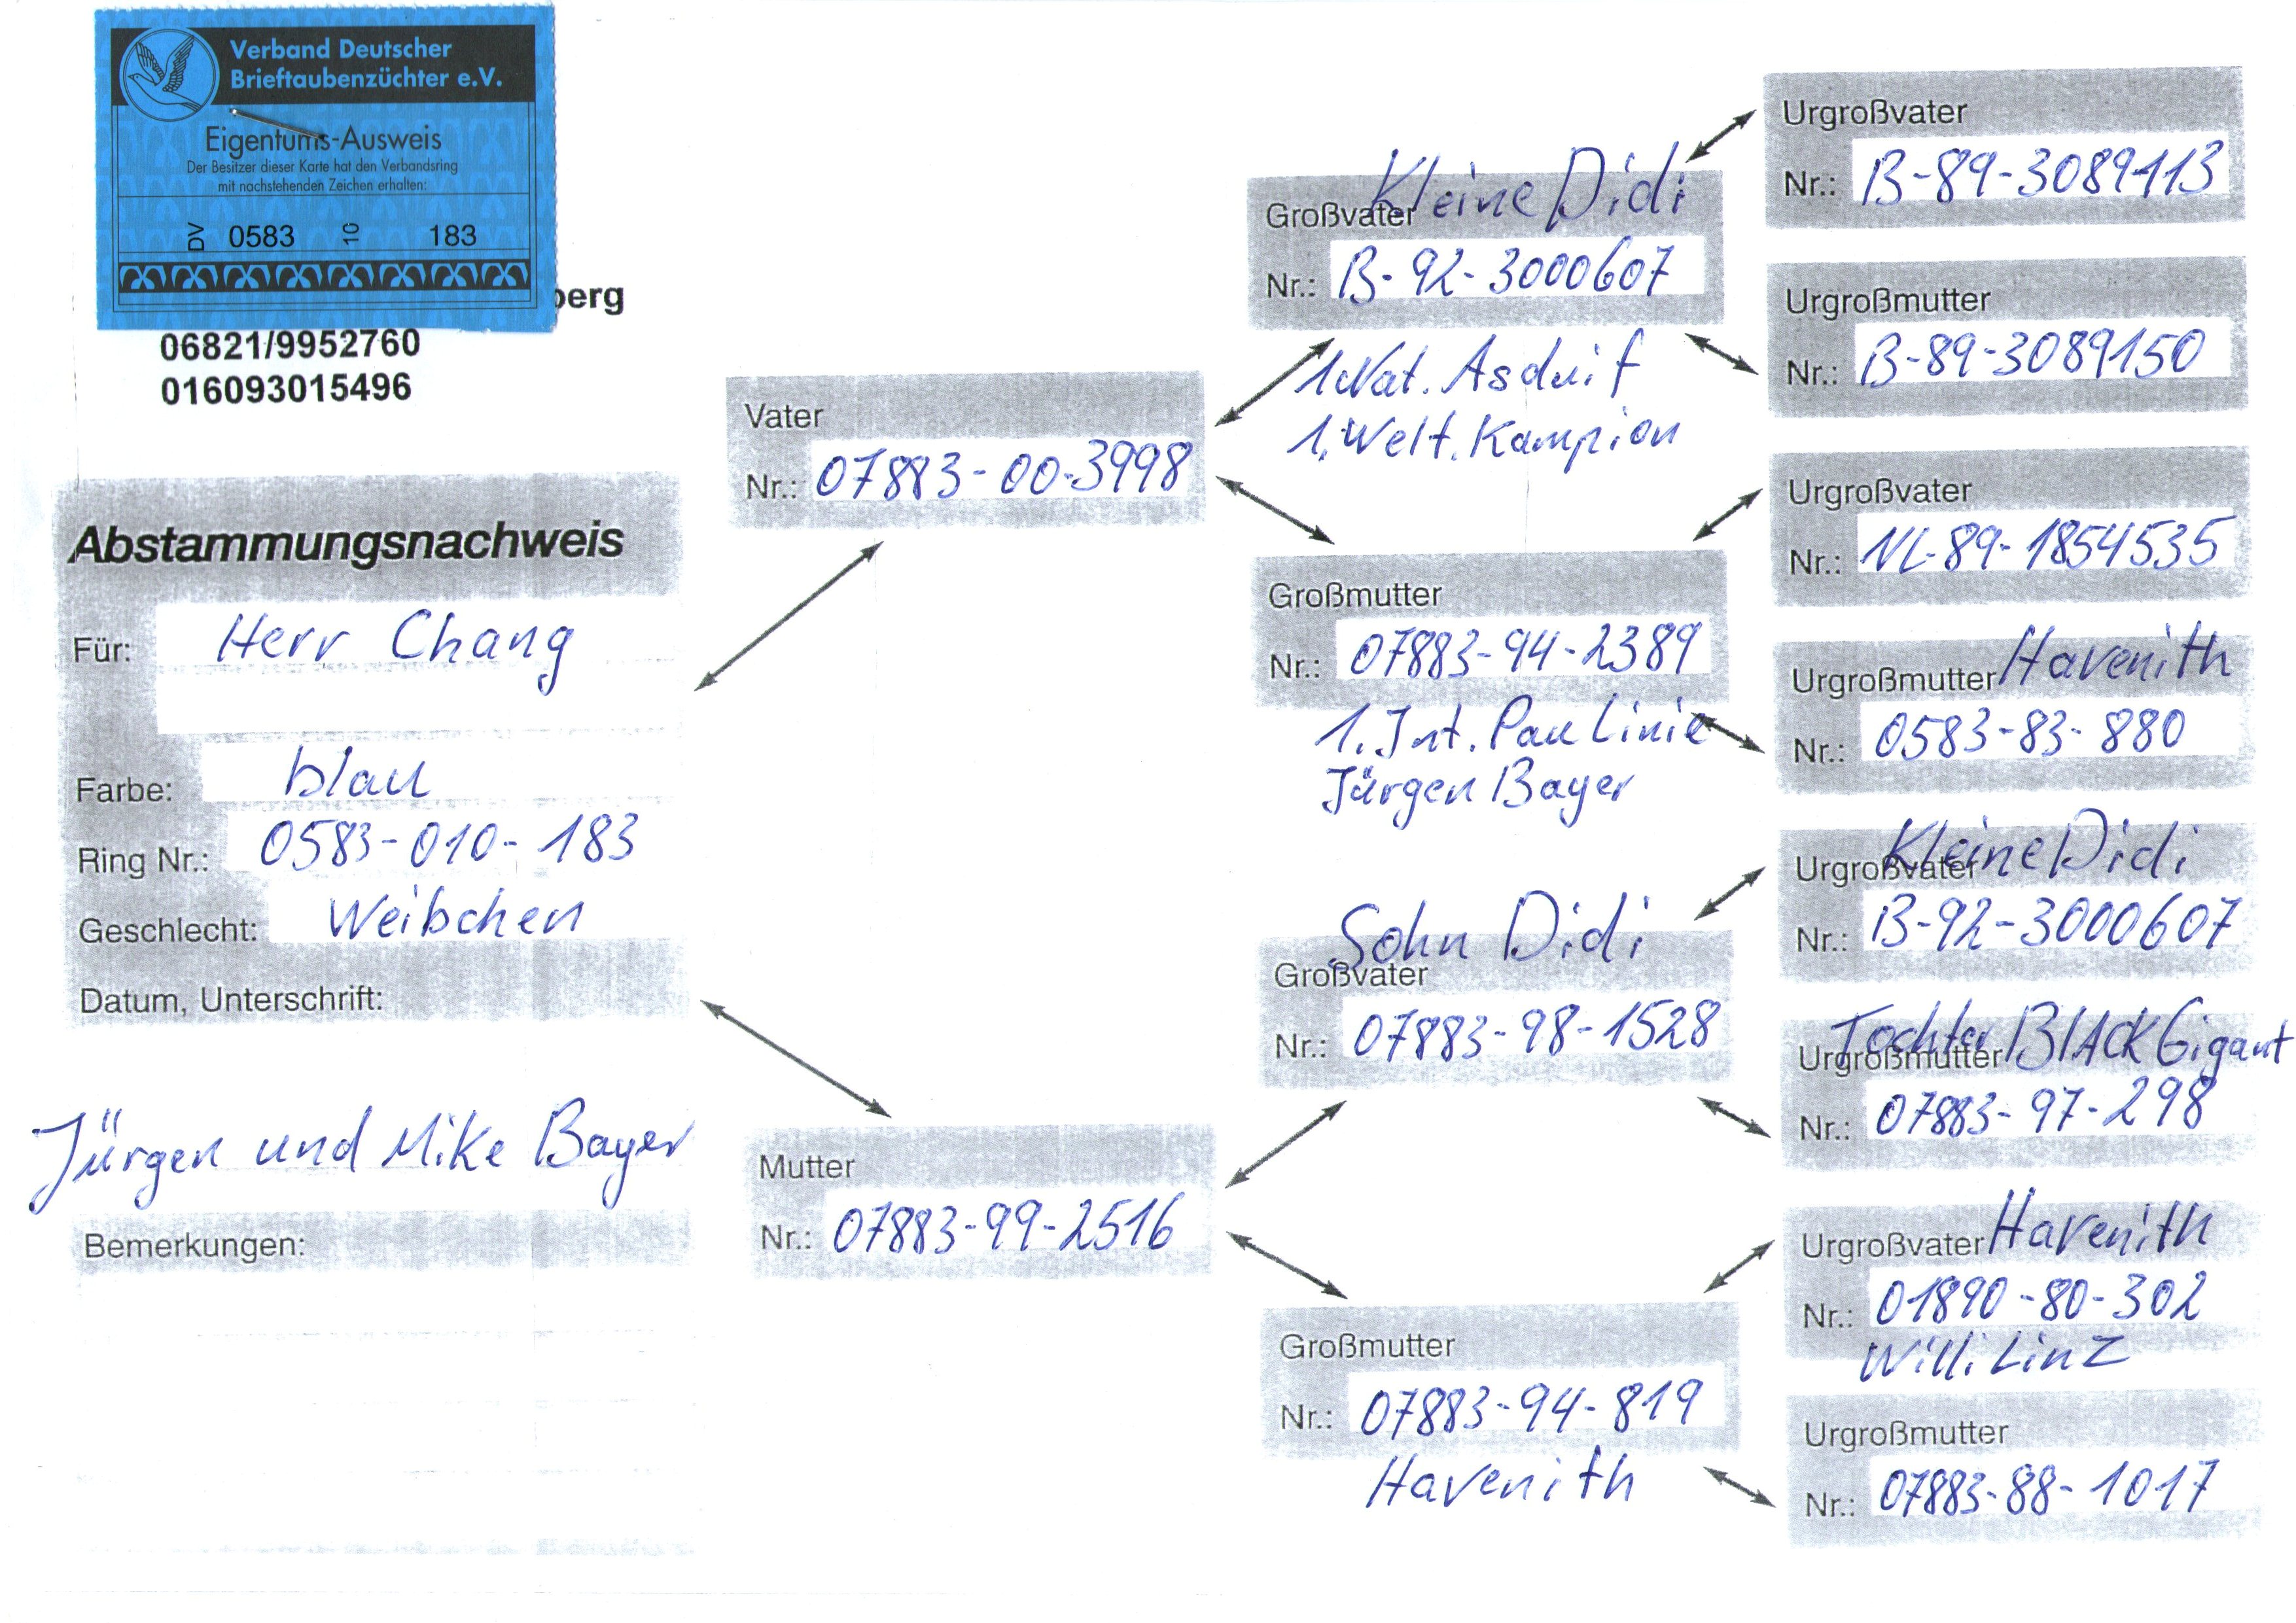 Verband Deutscher
Brieftaubenzüchter e.V.
Eigentums-Ausweis
Der Besitzer dieser Karte hat den Verbandsring
mit nachstehenden Zeichen erhalten:
DV 0583 10 183
berg
06821/9952760
016093015496
Abstammungsnachweis
Für: Herr Chang
Farbe: blau
Ring Nr.: 0583-010-183
Geschlecht: Weibchen
Datum, Unterschrift:
Jürgen und Mike Bayer
Bemerkungen:
Vater
Nr.: 07883-00-3998
Mutter
Nr.: 07883-99-2516
Kleine Didi
Großvater
Nr.: B-92-3000607
1.Nat. Asduif
1.Welt.Kampion
Großmutter
Nr.: 07883-94-2389
1.Int. Pau Linie
Jürgen Bayer
Sohn Didi
Großvater
Nr.: 07883-98-1528
Großmutter
Nr.: 07883-94-819
Havenith
Urgroßvater
Nr.: B-89-3089113
Urgroßmutter
Nr.: B-89-3089150
Urgroßvater
Nr.: NL-89-1854535
Urgroßmutter Havenith
Nr.: 0583-83-880
Kleine Didi
Urgroßvater
Nr.: B-92-3000607
Tochter BlACK Gigant
Urgroßmutter
Nr.: 07883-97-298
Urgroßvater Havenith
Nr.: 01890-80-302
Willi Linz
Urgroßmutter
Nr.: 07883-88-1017